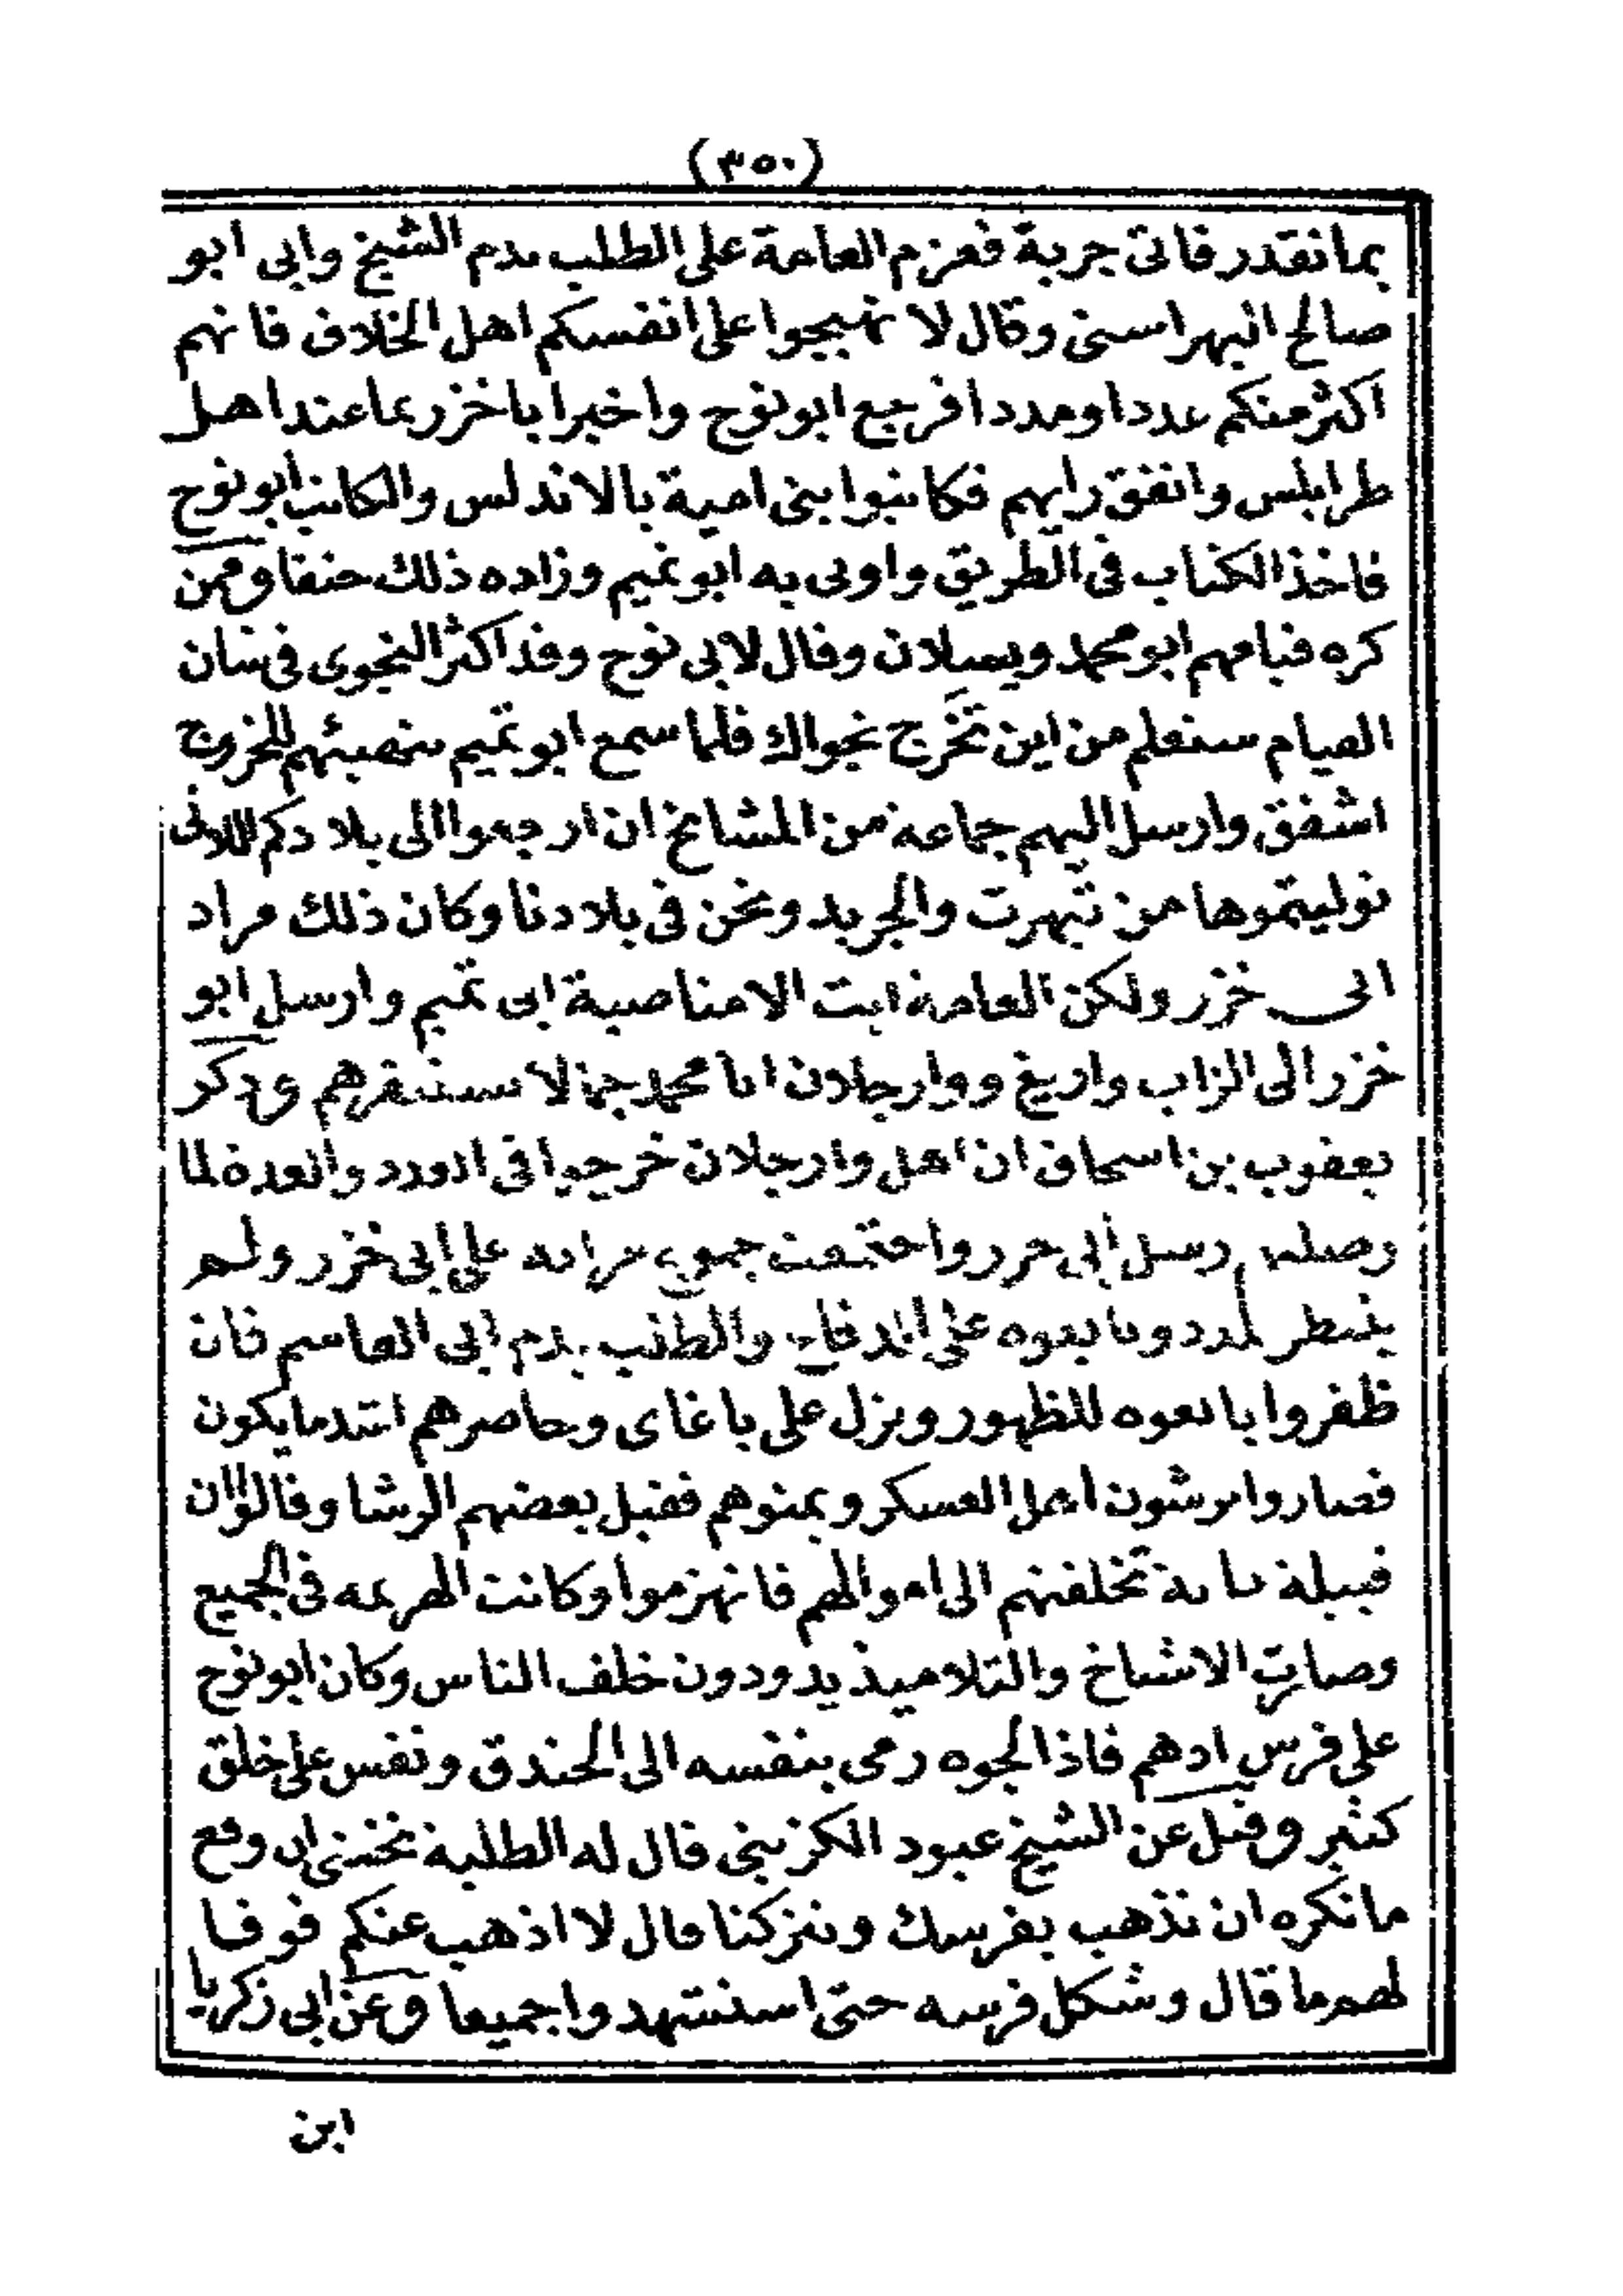 (٣٥٠)
بما نقدر فاتى جربة فعزم العامة على الطلب بدم الشيخ وابى ابو
صالح اليهراسنى وقال لا تهيجوا على انفسكم اهل الخلاف فانهم
اكثر منكم عددا ومددا فرجع ابو نوح واخبر ابا خزر بما عند اهل
طرابلس واتفق رايهم فكاتبوا بنى امية بالاندلس والكاتب ابو نوح
فاخذ الكتاب فى الطريق واوتى به ابو تميم وزاده ذلك حنقا وممن
كره قيامهم ابو محمد ويسلان وقال لابى نوح وقد اكثر النجوى فى شان
القيام ستعلم من اين تَخرج نجواك فلما سمع ابو تميم بتهيئهم للخروج
اشفق وارسل اليهم جماعة من المشايخ ان ارجعوا الى بلادكم اللاتى
توليتموها من تيهرت والجريد ونحن فى بلادنا وكان ذلك مراد
ابى خزر ولكن العامة ابت الا مناصبة ابى تميم وارسل ابو
خزر الى الزاب واريغ ووارجلان ابا محمد جمالا يستنفرهم وذكر
يعقوب بن اسحاق ان اهل وارجلان خرجوا فى العدد والعدة لما
وصلهم رسل ابى خزر واجتمعت جموع مزاته على ابى خزر ولم
ينتظر لمدد وبايعوه على الدفاع والطلب بدم ابى القاسم فان
ظفروا بايعوه للظهور ونزل على باغاى وحاصرهم اشد ما يكون
فصاروا يرشون اهل العسكر ويمنوهم فقبل بعضهم الرشا وقالوا ان
قبيلة تخلفتهم الى اموالهم فانهزموا وكانت الهزيمه فى الجميع
وصارت الاشياخ والتلاميذ يذودون خلف الناس وكان ابو نوح
على فرس ادهم فاذا لجوه رمى بنفسه الى الخندق ونفس على خلق
كثير وقيل عن الشيخ عبود الكزينى قال له الطلبة نخشى ان وقع
ما نكره ان تذهب بفرسك وتتركنا قال لا اذهب عنكم فوفا
لهم ما قال وشكل فرسه حتى استشهدوا جميعا وعن ابى زكريا
ابن